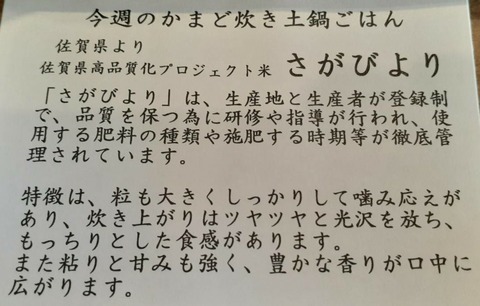 今週のかまど炊き土鍋ごはん
佐賀県より
佐賀県高品質化プロジェクト米 さがびより
「さがびより」は、生産地と生産者が登録制
で、品質を保つ為に研修や指導が行われ、使
用する肥料の種類や施肥する時期等が徹底管
理されています。
特徴は、粒も大きくしっかりして噛み応えが
あり、炊き上がりはツヤツヤと光沢を放ち、
もっちりとした食感があります。
また粘りと甘みも強く、豊かな香りが口中に
広がります。